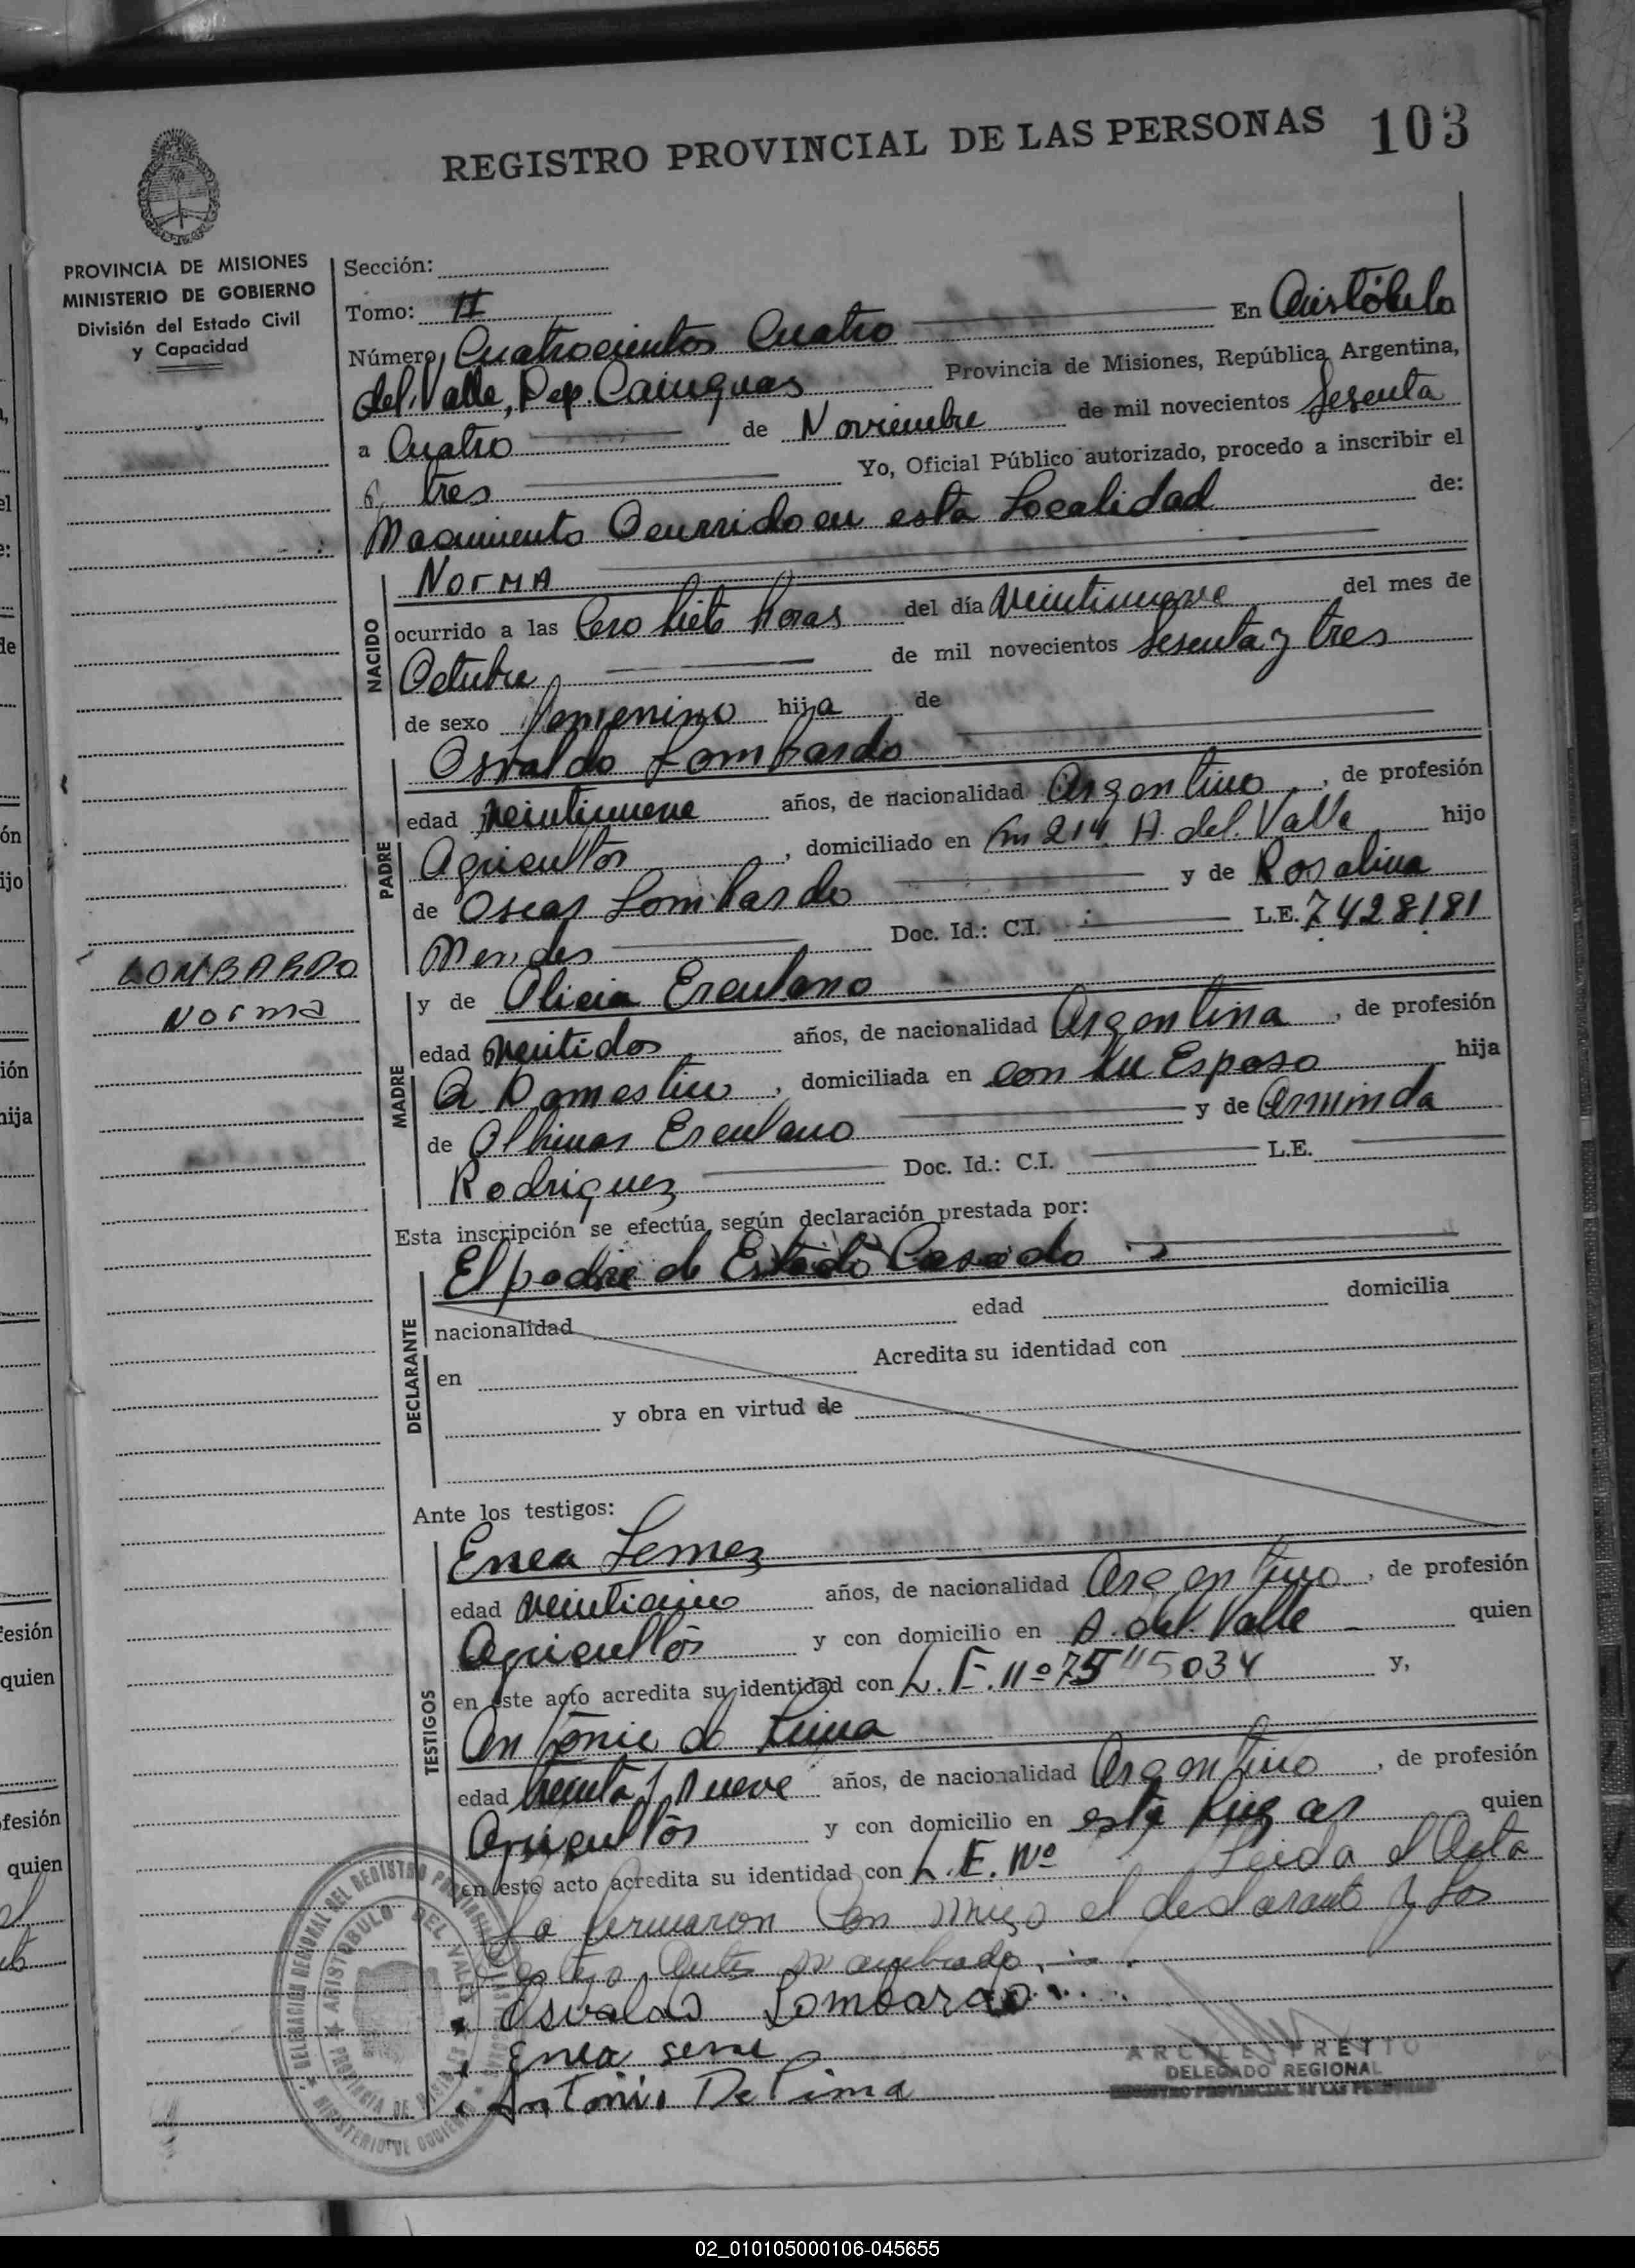 REGISTRO PROVINCIAL DE LAS PERSONAS 103
PROVINCIA DE MISIONES
MINISTERIO DE GOBIERNO
División del Estado Civil
y Capacidad
LOMBARDO
Norma
Sección:
Tomo: II
Número Cuatrocientos Cuatro En Aristóbulo
del Valle, Dep. Cainguas Provincia de Misiones, República Argentina,
a Cuatro de Noviembre de mil novecientos Sesenta
y tres Yo, Oficial Público autorizado, procedo a inscribir el
Nacimiento Ocurrido en esta Localidad de:
NACIDO
NOrMA
ocurrido a las Cero Siete horas del día Veintinueve del mes de
Octubre de mil novecientos Sesenta y tres
de sexo femenino hija de
PADRE
Osvaldo Lombardo
edad Veintinueve años, de nacionalidad Argentino, de profesión
Agricultor, domiciliado en Km 214. A. del. Valle hijo
de Oscar Lombardo y de Rosalina
Mendes Doc. Id.: C.I. L.E. 7.428.181
MADRE
y de Alicia Erculano
edad Veintidos años, de nacionalidad Argentina, de profesión
Q. Domestico, domiciliada en con su Esposo hija
de Erculano y de Arminda
Rodriguez Doc. Id.: C.I. L.E.
Esta inscripción se efectúa según declaración prestada por:
DECLARANTE
El padre de Estado Casado
nacionalidad edad domicilia
en Acredita su identidad con
y obra en virtud de
Ante los testigos:
TESTIGOS
Enea Lemez
edad años, de nacionalidad Argentino, de profesión
Agricultor y con domicilio en A. del. Valle quien
en este acto acredita su identidad con L.E. Nº y,
Antonio de Lima
edad treinta y Nueve años, de nacionalidad Argentino, de profesión
Agricultor y con domicilio en este lugar quien
en este acto acredita su identidad con L.E. Nº Leida el Acta
La firmaron Con migo el declarante y los
testigo Antes nombrado.
Osvaldo Lombardo
Enea
Antonio De Lima
DELEGADO REGIONAL
REGISTRO PROVINCIAL DE LAS PERSONAS
DELEGACION REGIONAL DEL REGISTRO PROVINCIAL
ARISTOBULO DEL VALLE
PROVINCIA DE MISIONES
MINISTERIO DE GOBIERNO
02_010105000106-045655